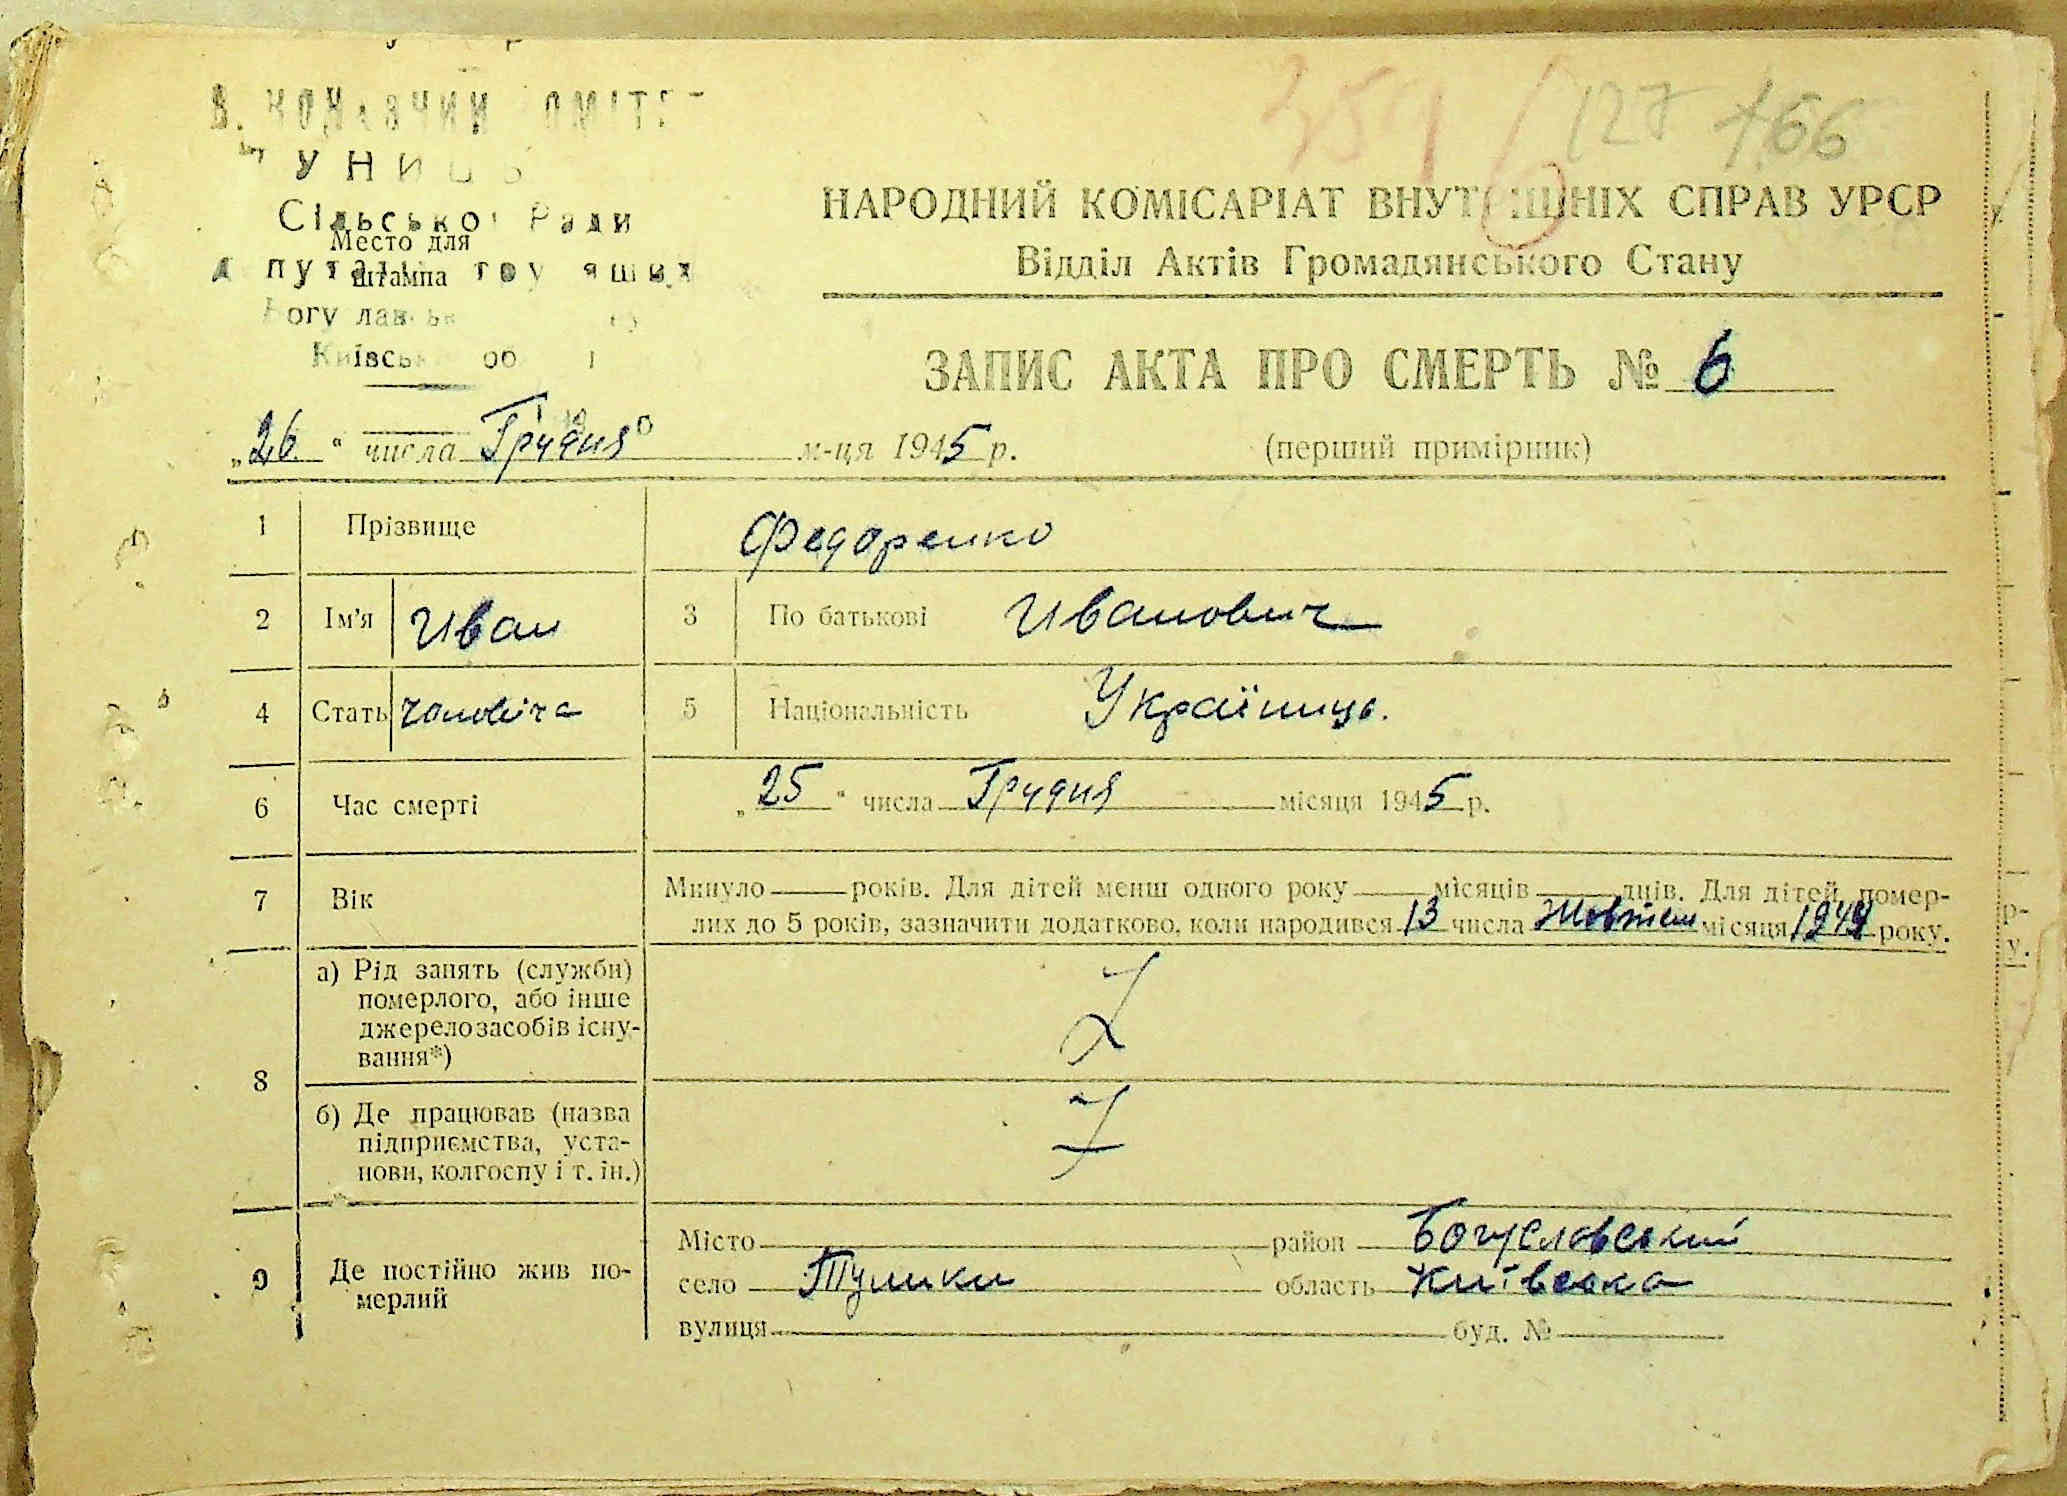 359 127 166
Сільської Ради
Место для
штампа
НАРОДНИЙ КОМІСАРІАТ ВНУТРІШНІХ СПРАВ УРСР
Відділ Актів Громадянського Стану
ЗАПИС АКТА ПРО СМЕРТЬ № 6
„26“ числа Грудня м-ця 1945 р. (перший примірник)
1 Прізвище Федоренко
2 Ім'я Иван 3 По батькові Иванович
4 Стать чоловіча 5 Національність Українць.
6 Час смерті „25“ числа Грудня місяця 1945 р.
7 Вік Минуло років. Для дітей менш одного року місяців днів. Для дітей, помер-
лих до 5 років, зазначити додатково, коли народився 13 числа Жовтня місяця 1944 року.
8 а) Рід занять (служби)
померлого, або інше
джерело засобів існу-
вання*)
б) Де працював (назва
підприємства, уста-
нови, колгоспу і т. ін.)
9 Де постійно жив по-
мерлий
Місто район Богуславський
село Туники область Київська
вулиця буд. №